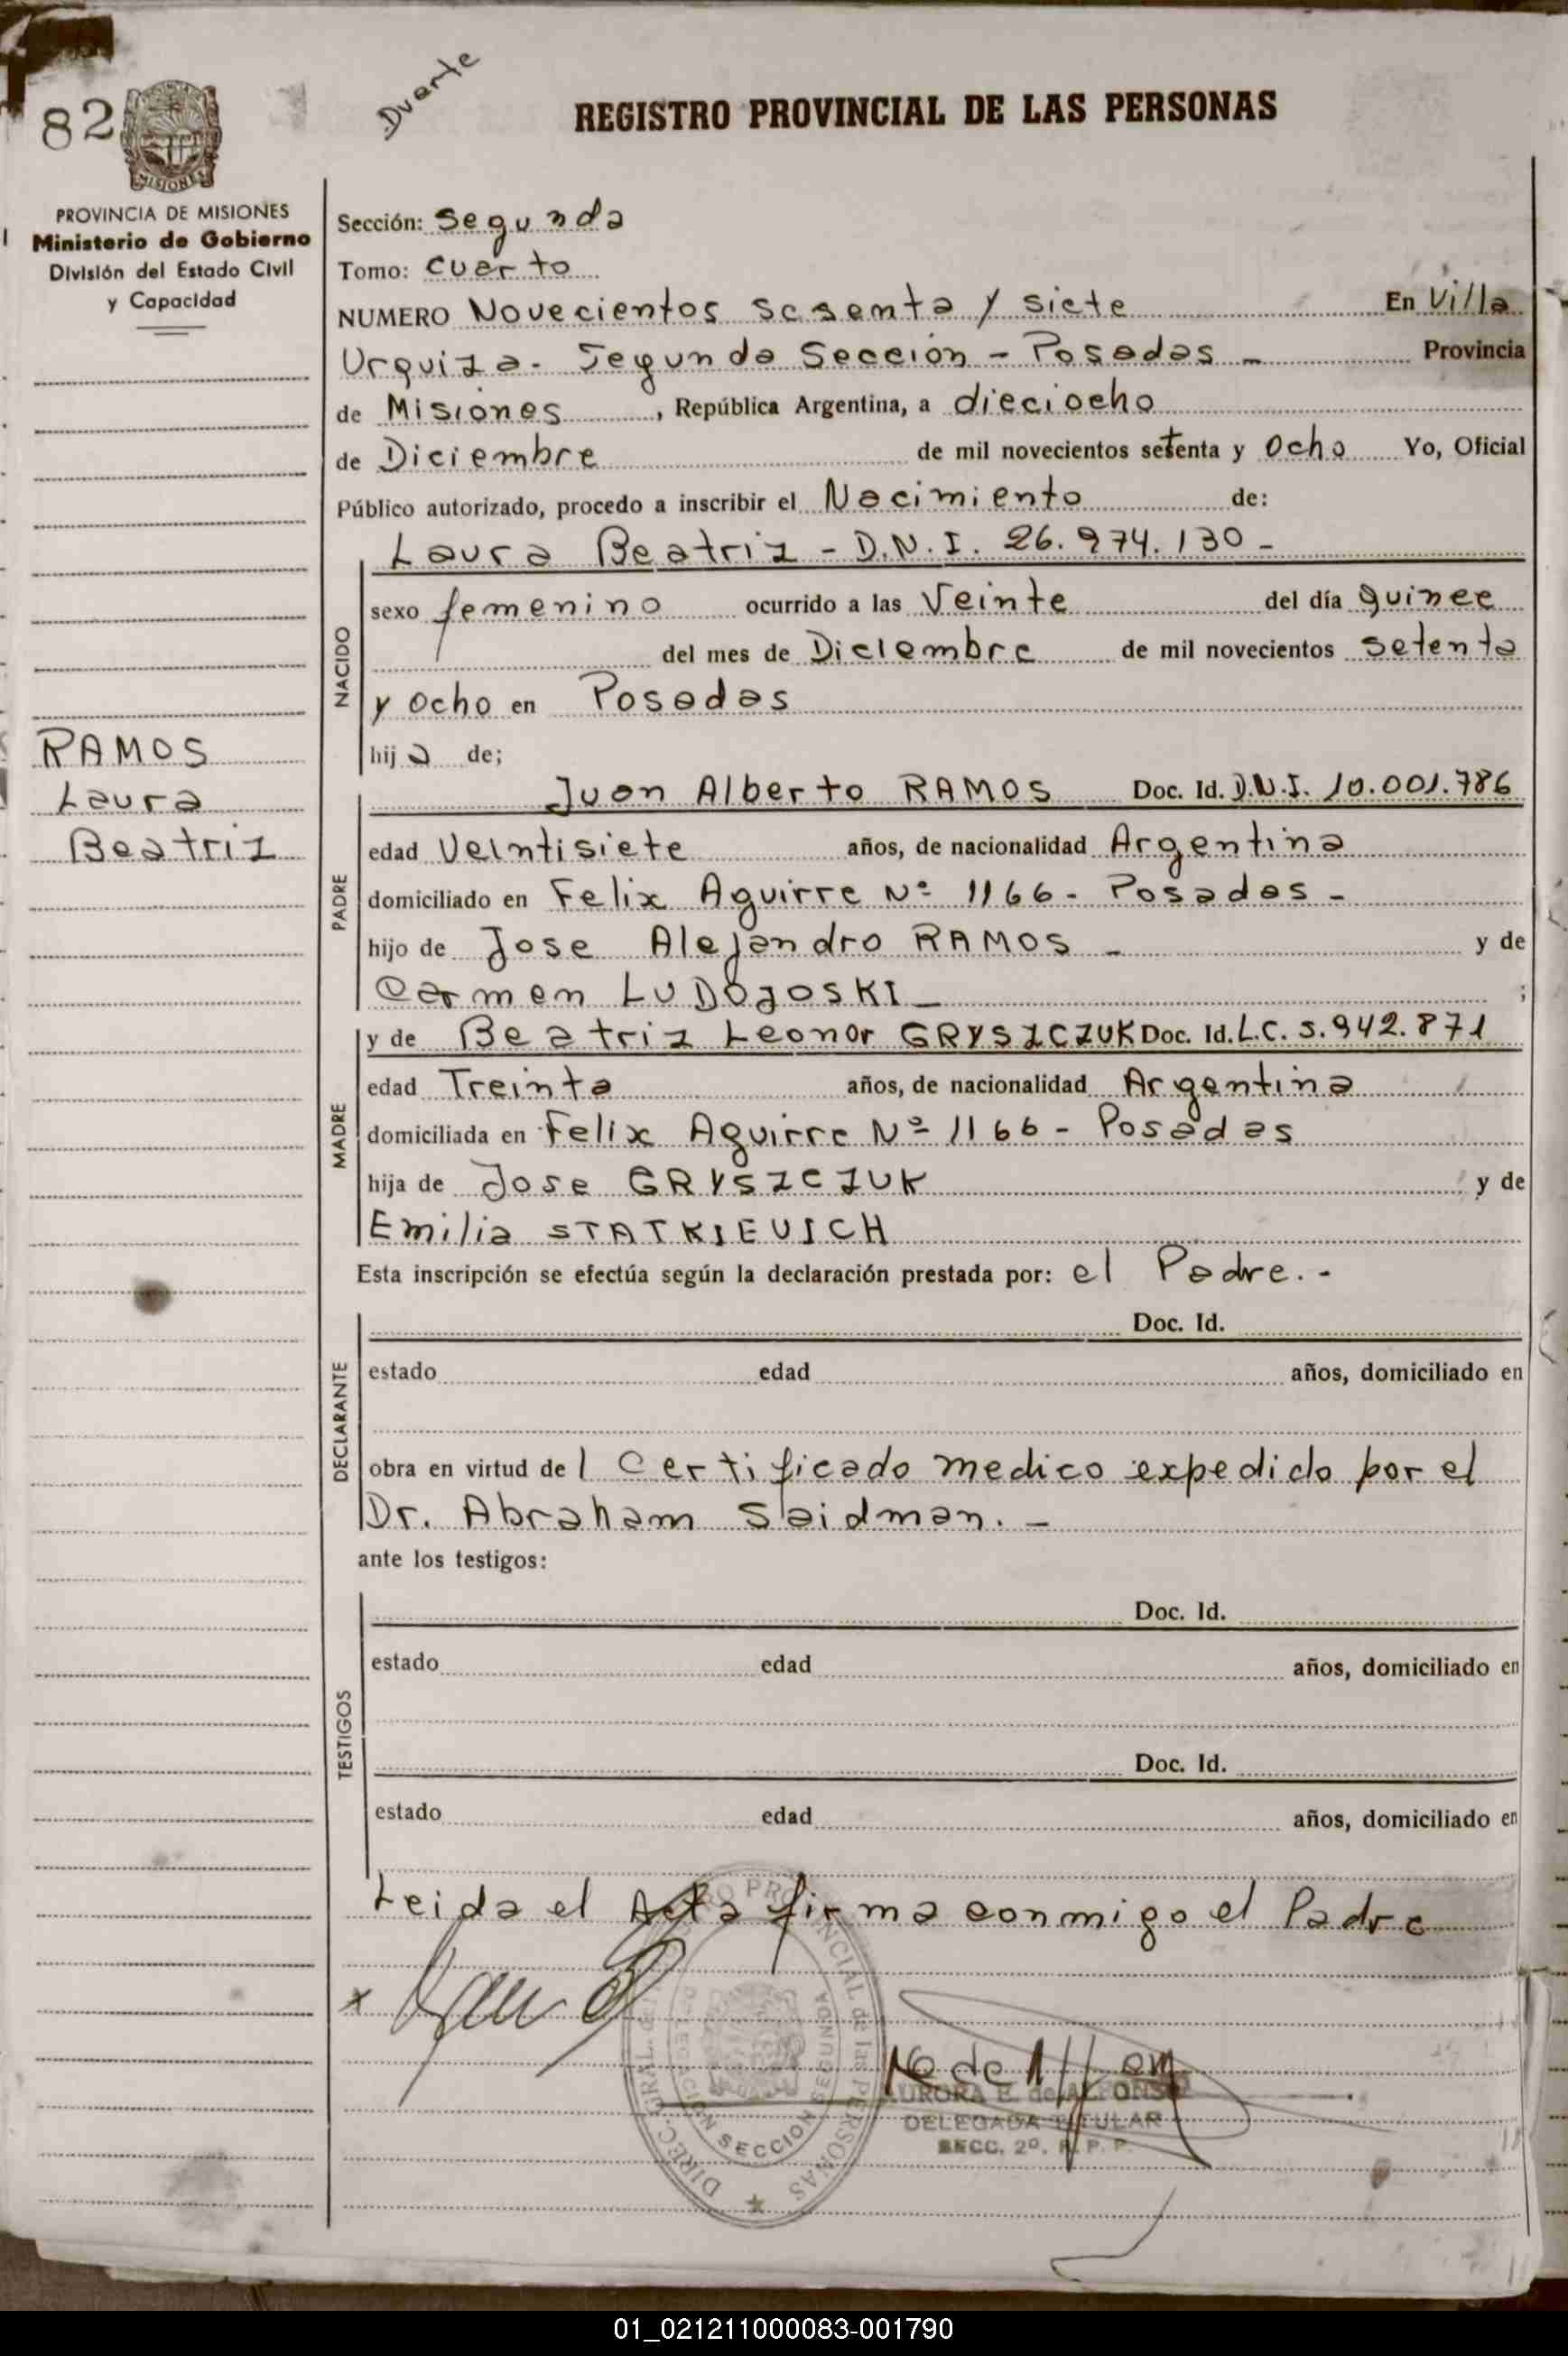 82
Duarte
REGISTRO PROVINCIAL DE LAS PERSONAS
MISIONES
PROVINCIA DE MISIONES
Ministerio de Gobierno
División del Estado Civil
y Capacidad
RAMOS
Laura
Beatriz
Sección: Segunda
Tomo: Cuarto
NUMERO Novecientos sesenta y siete En Villa
Urquiza - Segunda Sección - Posadas - Provincia
de Misiones, República Argentina, a dieciocho
de Diciembre de mil novecientos setenta y Ocho Yo, Oficial
Público autorizado, procedo a inscribir el Nacimiento de:
Laura Beatriz - D.N.I. 26.974.130 -
NACIDO
sexo femenino ocurrido a las Veinte del día quince
del mes de Diciembre de mil novecientos setenta
y Ocho en Posadas
hija de;
PADRE
Juan Alberto RAMOS Doc. Id. D.N.I. 10.001.786
edad Veintisiete años, de nacionalidad Argentina
domiciliado en Felix Aguirre Nº 1166 - Posadas -
hijo de Jose Alejandro RAMOS - y de
Carmen LUDOJOSKI - ;
MADRE
y de Beatriz Leonor GRYSZCZUK Doc. Id. L.C. 5.942.871
edad Treinta años, de nacionalidad Argentina
domiciliada en Felix Aguirre Nº 1166 - Posadas
hija de Jose GRYSZCZUK y de
Emilia STATKIEVICH
Esta inscripción se efectúa según la declaración prestada por: el Padre. -
DECLARANTE
Doc. Id.
estado edad años, domiciliado en
obra en virtud del Certificado medico expedido por el
Dr. Abraham Saidman. -
ante los testigos:
TESTIGOS
Doc. Id.
estado edad años, domiciliado en
Doc. Id.
estado edad años, domiciliado en
Leida el Acta firma conmigo el Padre
x
AURORA E. de ALFONSO
DELEGADA TITULAR
SECC. 2º. R. P. P.
SECCION SEGUNDA
01_021211000083-001790